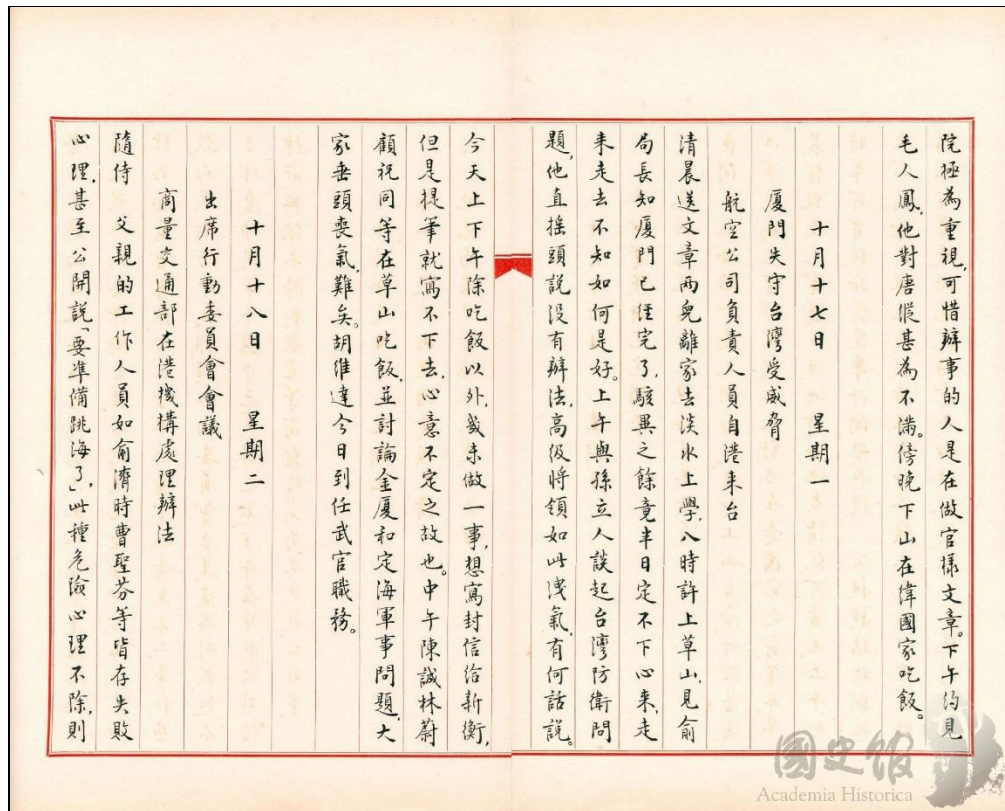 院極為重視,可惜辦事的人是在做官樣文章。下午約見
毛人鳳,他對唐縱甚為不滿。傍晚下山在偉國家吃飯。
十月十七日 星期一
厦門失守台灣受威脅
航空公司負責人員自港来台
清晨送文章两兒離家去淡水上學,八時許上草山,見俞
局長知厦門已經完了,駭異之餘竟半日定不下心来,走
来走去不知如何是好。上午與孫立人談起台灣防衛問
題,他直摇頭説没有辦法,高級將領如此洩氣,有何話説。
今天上下午除吃飯以外,或未做一事,想寫封信給新衡,
但是提筆就寫不下去,心意不定之故也。中午陳誠林蔚
顧祝同等在草山吃飯,並討論金厦和定海軍事問題,大
家垂頭喪氣,難矣。胡維達今日到任武官職務。
十月十八日 星期二
出席行動委員會會議
商量交通部在港機構處理辦法
隨侍 父親的工作人員如俞濟時曹聖芬等皆存失敗
心理,甚至公開説「要準備跳海了」此種危險心理不除,則
國史館
Academia Historica